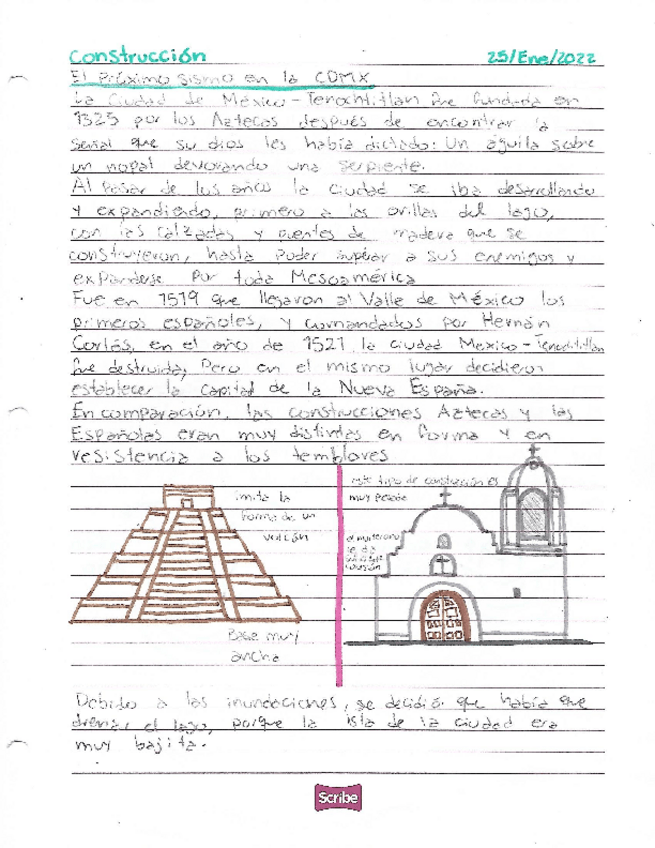 Construcción 25/Ene/2022
El próximo sismo en la CDMX
La Ciudad de México - Tenochtitlan fue fundada en
1325 por los Aztecas después de encontrar la
señal que su dios les había dictado: Un aguila sobre
un nopal devorando una serpiente.
Al pasar de los años la ciudad se iba desarrollando
y expandiendo, primero a las orillas del lago,
con las calzadas y puentes de madera que se
construyeron, hasta poder superar a sus enemigos y
expanderse por toda Mesoamérica
Fue en 1519 que llegaron al Valle de México los
primeros españoles, y comandados por Hernán
Cortés, en el año de 1521 la ciudad Mexico - Tenochtitlan
fue destruida, Pero en el mismo lugar decidieron
establecer la capital de la Nueva España.
En comparación, las construcciones Aztecas y las
Españolas eran muy distintas en forma y en
resistencia a los temblores
imita la
forma de un
volcán
Base muy
ancha
este tipo de construcción es
muy pesada
al
se da
Debido a las inundaciones, se decidió que había que
drenar el lago, porque la isla de la ciudad era
muy bajita.
Scribe